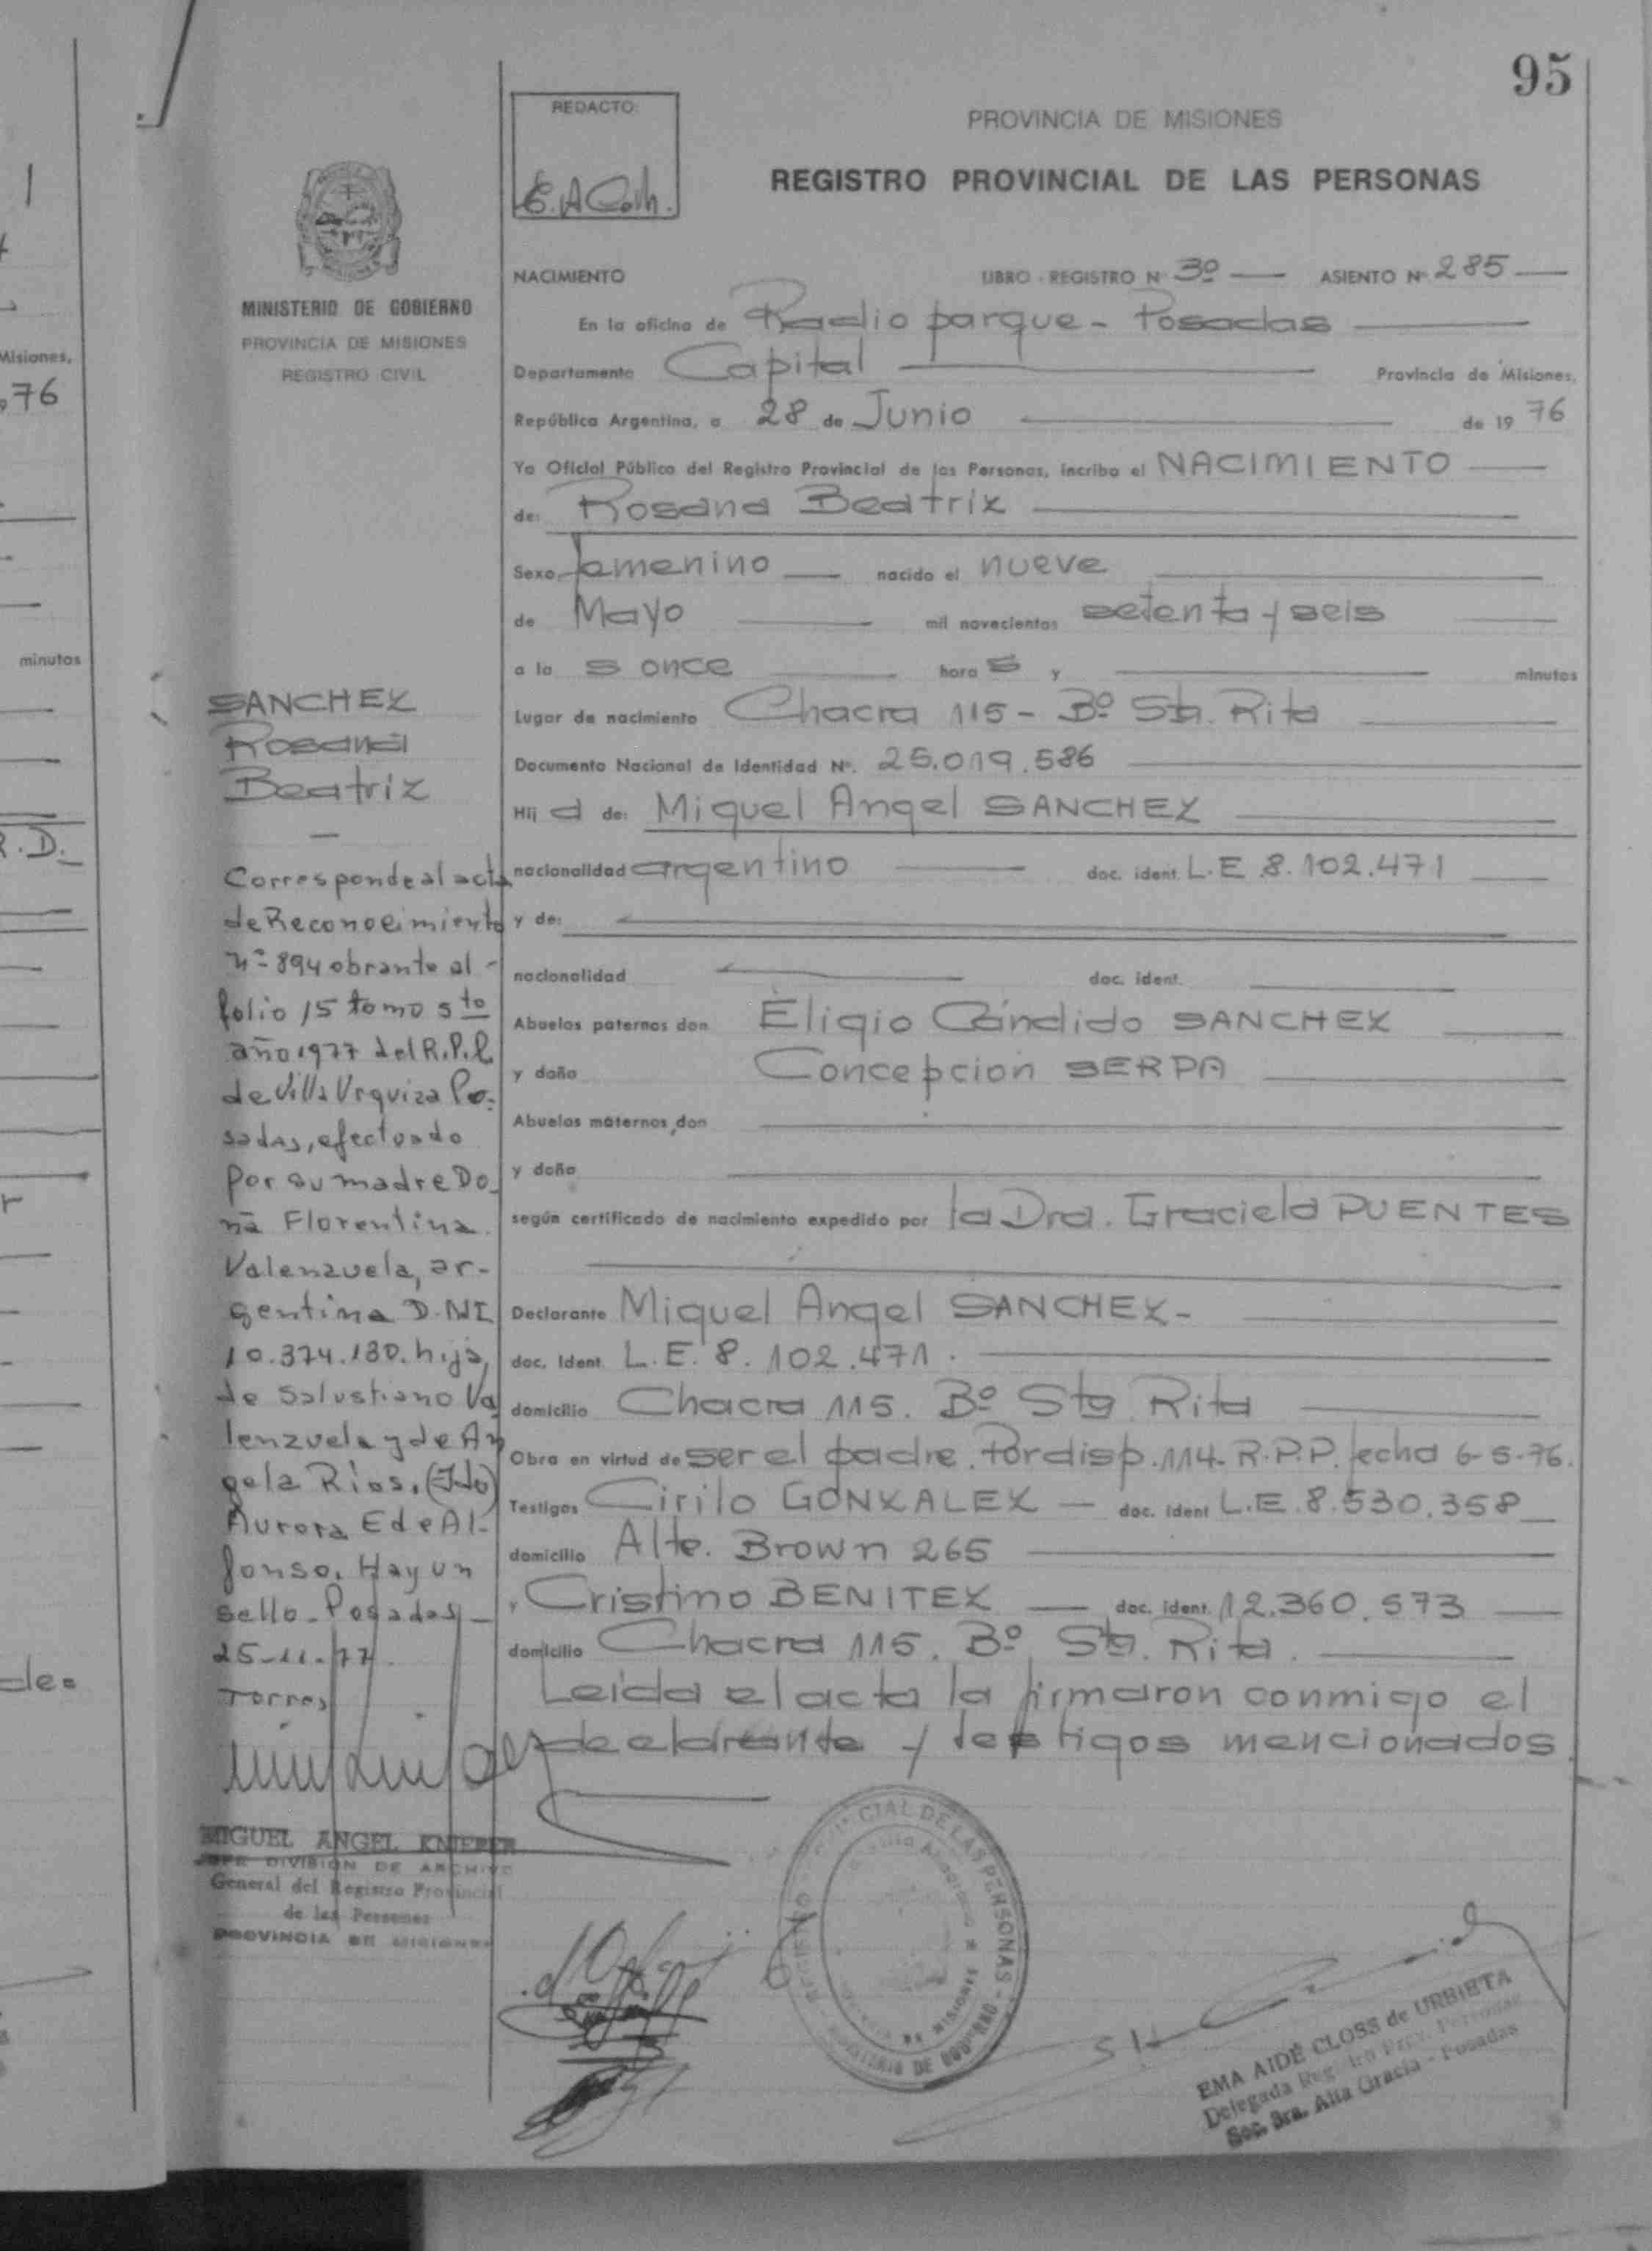 95
REDACTO:
PROVINCIA DE MISIONES
REGISTRO PROVINCIAL DE LAS PERSONAS
MINISTERIO DE GOBIERNO
PROVINCIA DE MISIONES
REGISTRO CIVIL
NACIMIENTO LIBRO - REGISTRO Nº 3º ASIENTO Nº 285
En la oficina de Radio parque - Posadas
Departamento Capital Provincia de Misiones,
República Argentina, a 28 de Junio de 19 76
Yo Oficial Público del Registro Provincial de las Personas, inscribo el NACIMIENTO
de: Rosana Beatriz
Sexo femenino nacido el nueve
de Mayo mil novecientos setenta y seis
a la s once hora s y minutos
Lugar de nacimiento Chacra 115 - Bº Sta. Rita
Documento Nacional de Identidad Nº. 25.019.586
Hij a de: Miguel Angel SANCHEZ
nacionalidad argentino doc. ident. L.E 8.102.471
y de:
nacionalidad doc. ident.
Abuelos paternos don Eligio Cándido SANCHEZ
y doña Concepcion SERPA
Abuelos maternos, don
y doña
según certificado de nacimiento expedido por la Dra. Graciela PUENTES
Declarante Miguel Angel SANCHEZ -
doc. Ident. L.E. 8.102.471.
domicilio Chacra 115. Bº Sta Rita
Obra en virtud de ser el padre. Por disp. 114- R.P.P. fecha 6-5-76.
Testigos Cirilo GONZALEZ — doc. ident L.E. 8.530.358
domicilio Alte. Brown 265
y Cristino BENITEZ — doc. ident. 12.360.573
domicilio Chacra 115. Bº Sta. Rita.
Leida el acta la firmaron conmigo el
declarante y testigos mencionados.
SANCHEZ
Rosana
Beatriz
—
Corresponde al acta
de Reconocimiento
Nº 894 obrante al
folio 15 tomo 5to
año 1977 del R.P.P.
de Villa Urquiza Po-
sadas, efectuado
por su madre Do-
ña Florentina
Valenzuela, ar-
gentina D.NI
10.374.180. hija
de Salustiano Va
lenzuela y de An
gela Rios. (Fdo)
Aurora E de Al-
fonso. Hay un
sello - Posadas -
25-11-77.
Torres
MIGUEL ANGEL KNIEPER
JEFE DIVISION DE ARCHIVO
General del Registro Provincial
de las Personas
PROVINCIA DE MISIONES
EMA AIDÉ CLOSS de URBIETA
Delegada Registro Prov. Personas
Soc. Sra. Alta Gracia - Posadas
Misiones,
76
minutos
R.D.